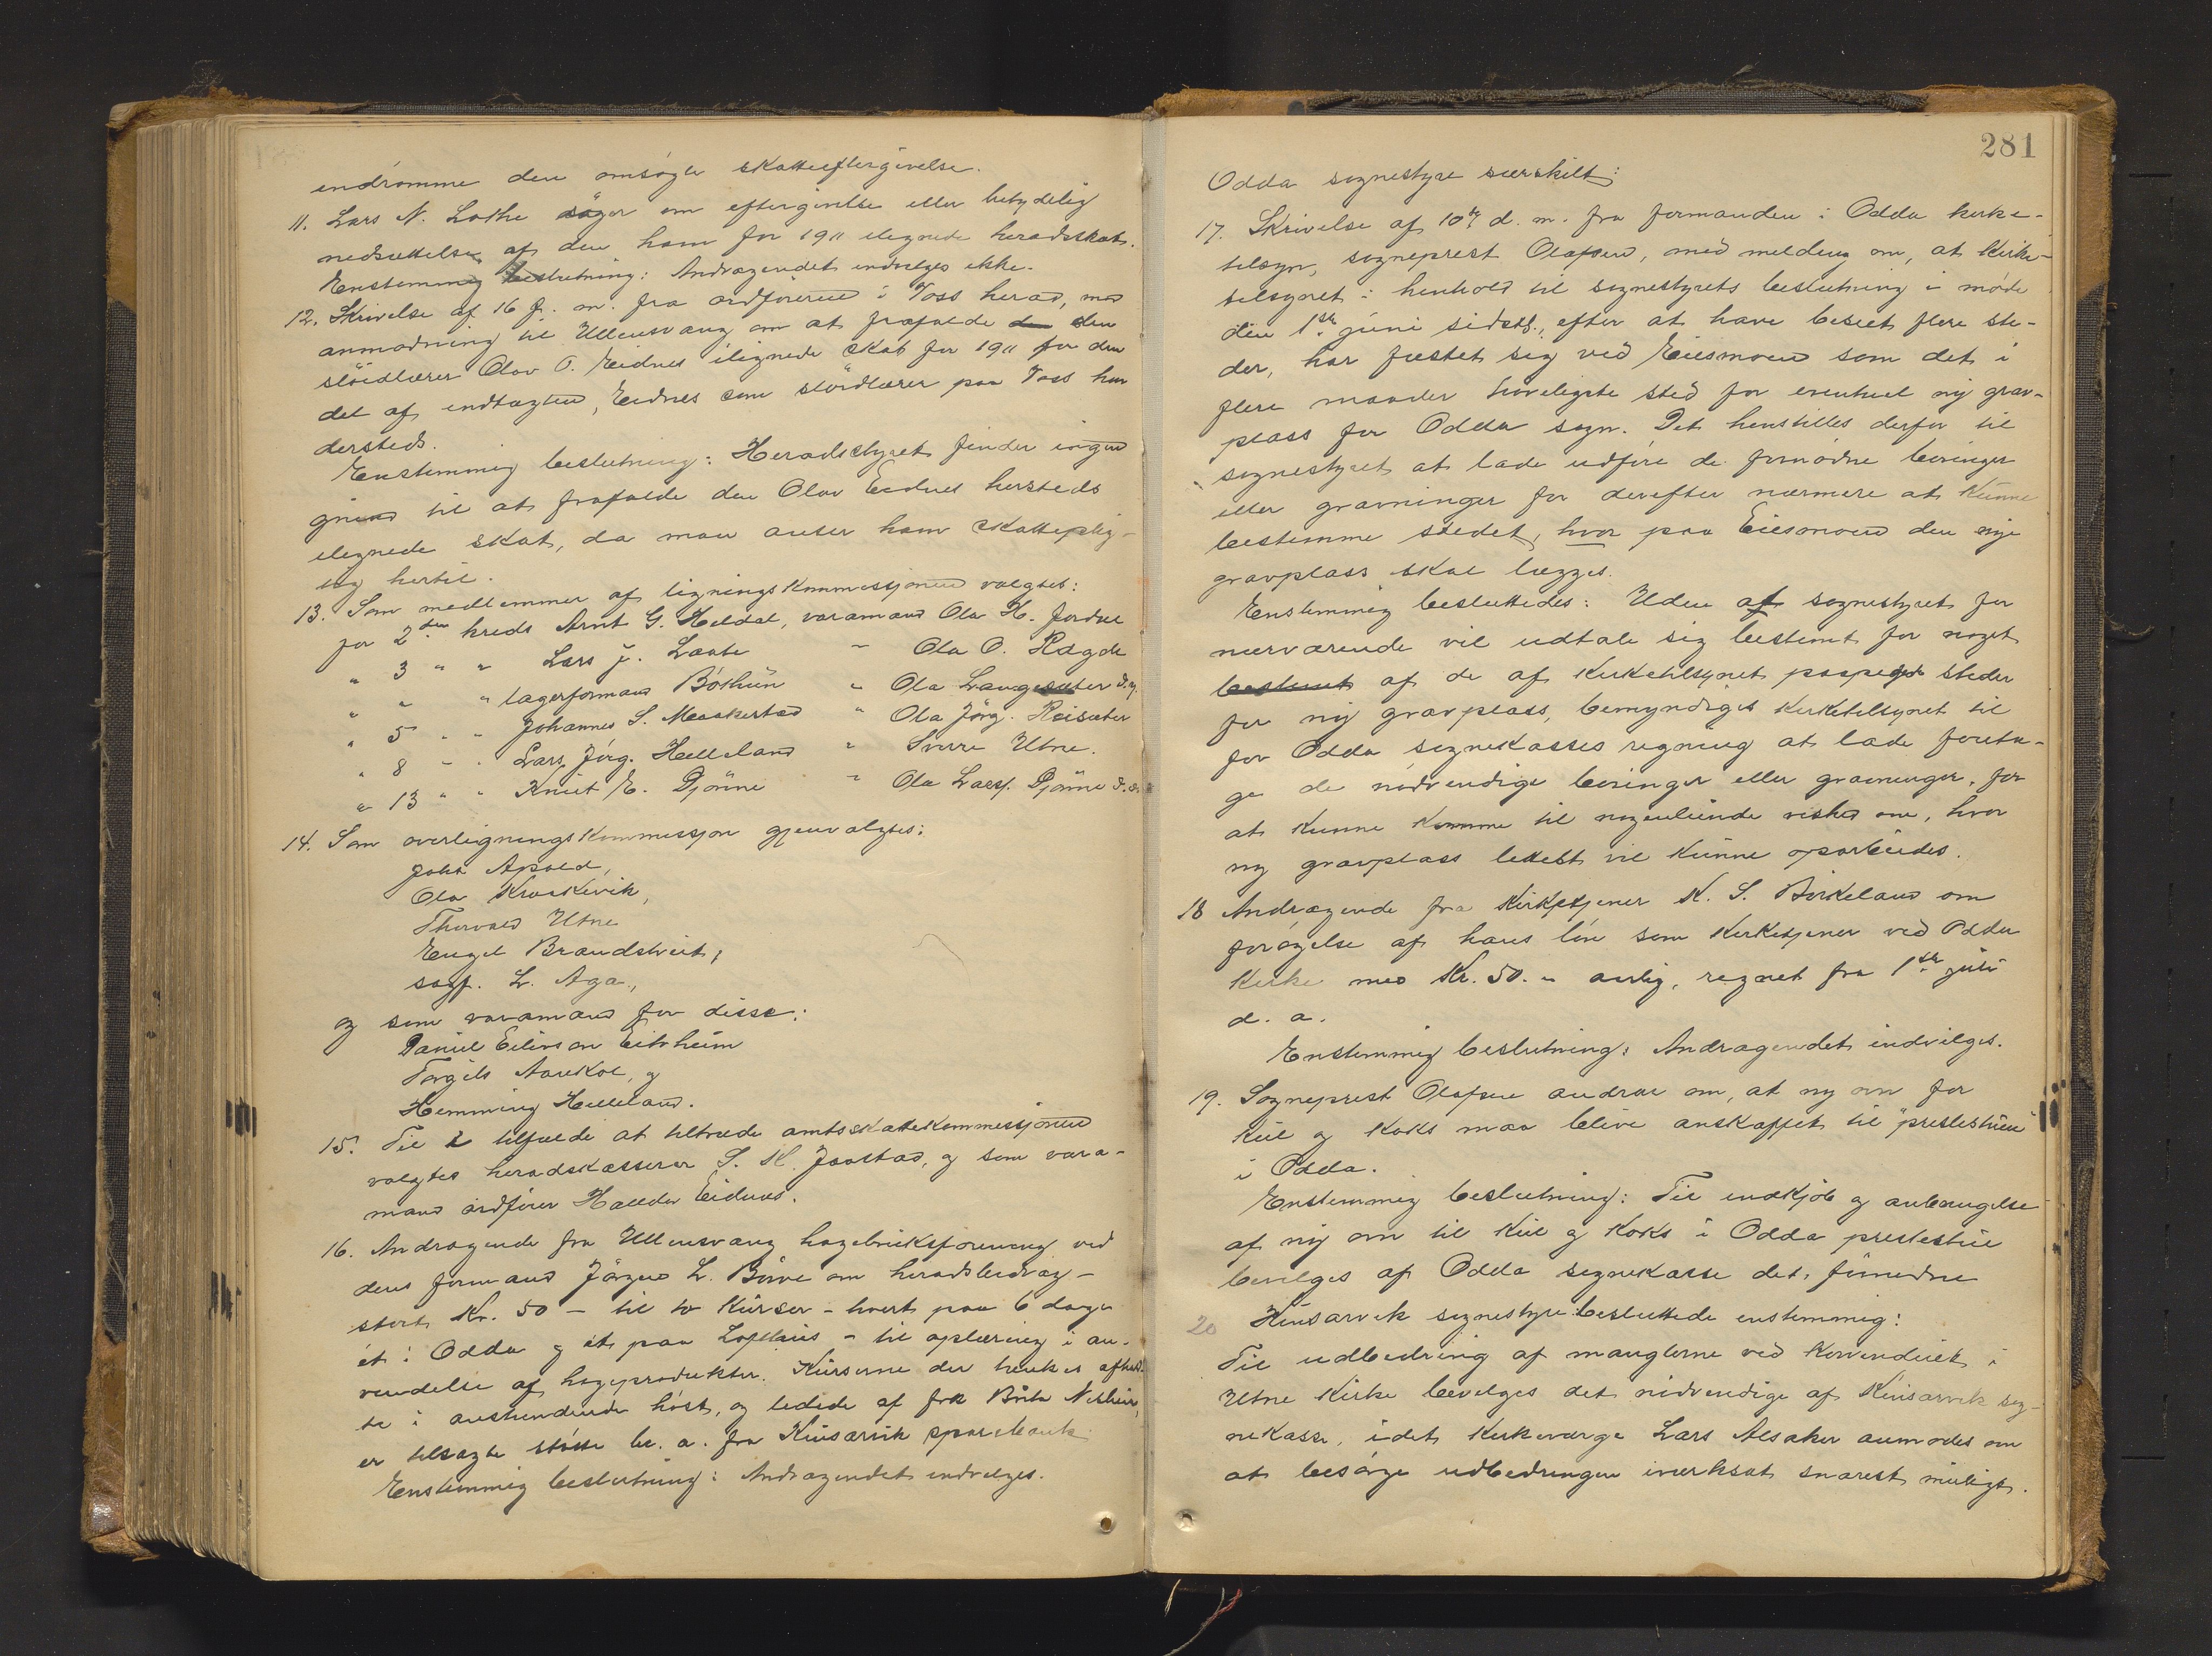 indrømme den omsøgte skatteeftergivelse.
11. Lars N. Lothe søger om eftergivelse eller betydelig
nedsættelse af den ham for 1911 ilignede heradsskat.
Enstemmig beslutning: Andragendet indvilges ikke.
12. Skrivelse af 16 f. m. fra ordføreren i Voss herad, med
anmodning til Ullensvang om at frafalde den
sløidlærer Olav O. Eidnes ilignede skat for 1911 for den
del af indtægten, Eidnes som sløidlærer paa Voss har
dersteds.
Enstemmig beslutning: Heradsstyret finder ingen
grund til at frafalde den Olav Eidnes hersteds
ilignede skat, da man anser ham skatteplig-
tig hertil.
13. Som medlemmer af ligningskommissjonen valgtes:
for 2den kreds Arnt G. Heldal, varamand Ola H. Jordal
" 3 " " Lars J. Laate " Ola O. Ragde
" " " lagerformand Bøthun " Ola Langesæter d.y.
" 5 " " Johannes S. Maakestad " Ola Jørg. Reisæter
" 8 " " Lars Jørg. Helleland " Sverre Utne.
" 13 " " Knut E. Djønne " Ola Larss. Djønne d.e.
14. Som overligningskommissjon gjenvalgtes:
John Apold,
Ola Kraakevik,
Thorvald Utne
Engel Brandstveit,
sagf. L. Aga,
og som varamænd for disse:
Daniel Eilivson Eitrheim
Torgils Aarekol, og
Hemming Helleland.
15. Til i tilfælde at tiltræde amtsskattekommissjonen
valgtes heradskasserer S. K. Jaastad, og som vara-
mand ordfører Halldor Eidnes.
16. Andragende fra Ullensvang hagebruksforening ved
dens formand Jørgen L. Børve om heradsbidrag -
stort Kr. 50 - til to kurser - hvert paa 6 dager
ét i Odda og ét paa Lofthus - til oplæring i an-
vendelse af hageprodukter. Kurserne der tænkes afhold-
te i anstundende høst, og ledede af frk Brita
er tilsagte støtte bl. a. fra Kinsarvik sparebank.
Enstemmig beslutning: Andragendet indvilges.
281
Odda sognestyre særskilt:
17. Skrivelse af 10de d. m. fra formanden i Odda kirke-
tilsyn, sogneprest Olafsen, med melding om, at kirke-
tilsynet i henhold til sognestyrets beslutning i møde
den 1ste juni sidstl., efter at have beseet flere ste-
der, har fæstet sig ved Eiesmoen som det i
flere maader høveligste sted for eventuel ny grav-
plass for Odda sogn. Det henstilles derfor til
sognestyret at lade udføre de fornødne boringer
eller gravninger for derefter nærmere at kunne
bestemme stedet, hvor paa Eiesmoen den nye
gravplass skal lægges.
Enstemmig besluttedes: Uden at sognestyret for
nærværende vil udtale sig bestemt for noget
bestemt af de af kirketilsynet paapegede steder
for ny gravplass, bemyndiges kirketilsynet til
for Odda sognekasses regning at lade foreta-
ge de nødvendige boringer eller gravninger, for
at kunne komme til nogenlunde vished om, hvor
ny gravplass lettest vil kunne oparbeides.
18 Andragende fra kirketjener K. S. Birkeland om
forøgelse af hans løn som kirketjener ved Odda
kirke med Kr. 50.- aarlig, regnet fra 1ste juli
d. a.
Enstemmig beslutning: Andragendet indvilges.
19. Sogneprest Olafsen andrar om, at ny ovn for
kul og koks maa blive anskaffet til "prestestuen"
i Odda.
Enstemmig beslutning: Til indkjøb og anbringelse
af ny ovn til kul og koks i Odda prestestue
bevilges af Odda sognekasse det fornødne
20 Kinsarvik sognestyre besluttede enstemmig:
Til udbedring af manglerne ved i
Utne kirke bevilges det nødvendige af Kinsarvik sog-
nekasse, idet kirkeværge Lars Alsaker anmodes om
at besørge udbedringen iverksat snarest muligt.